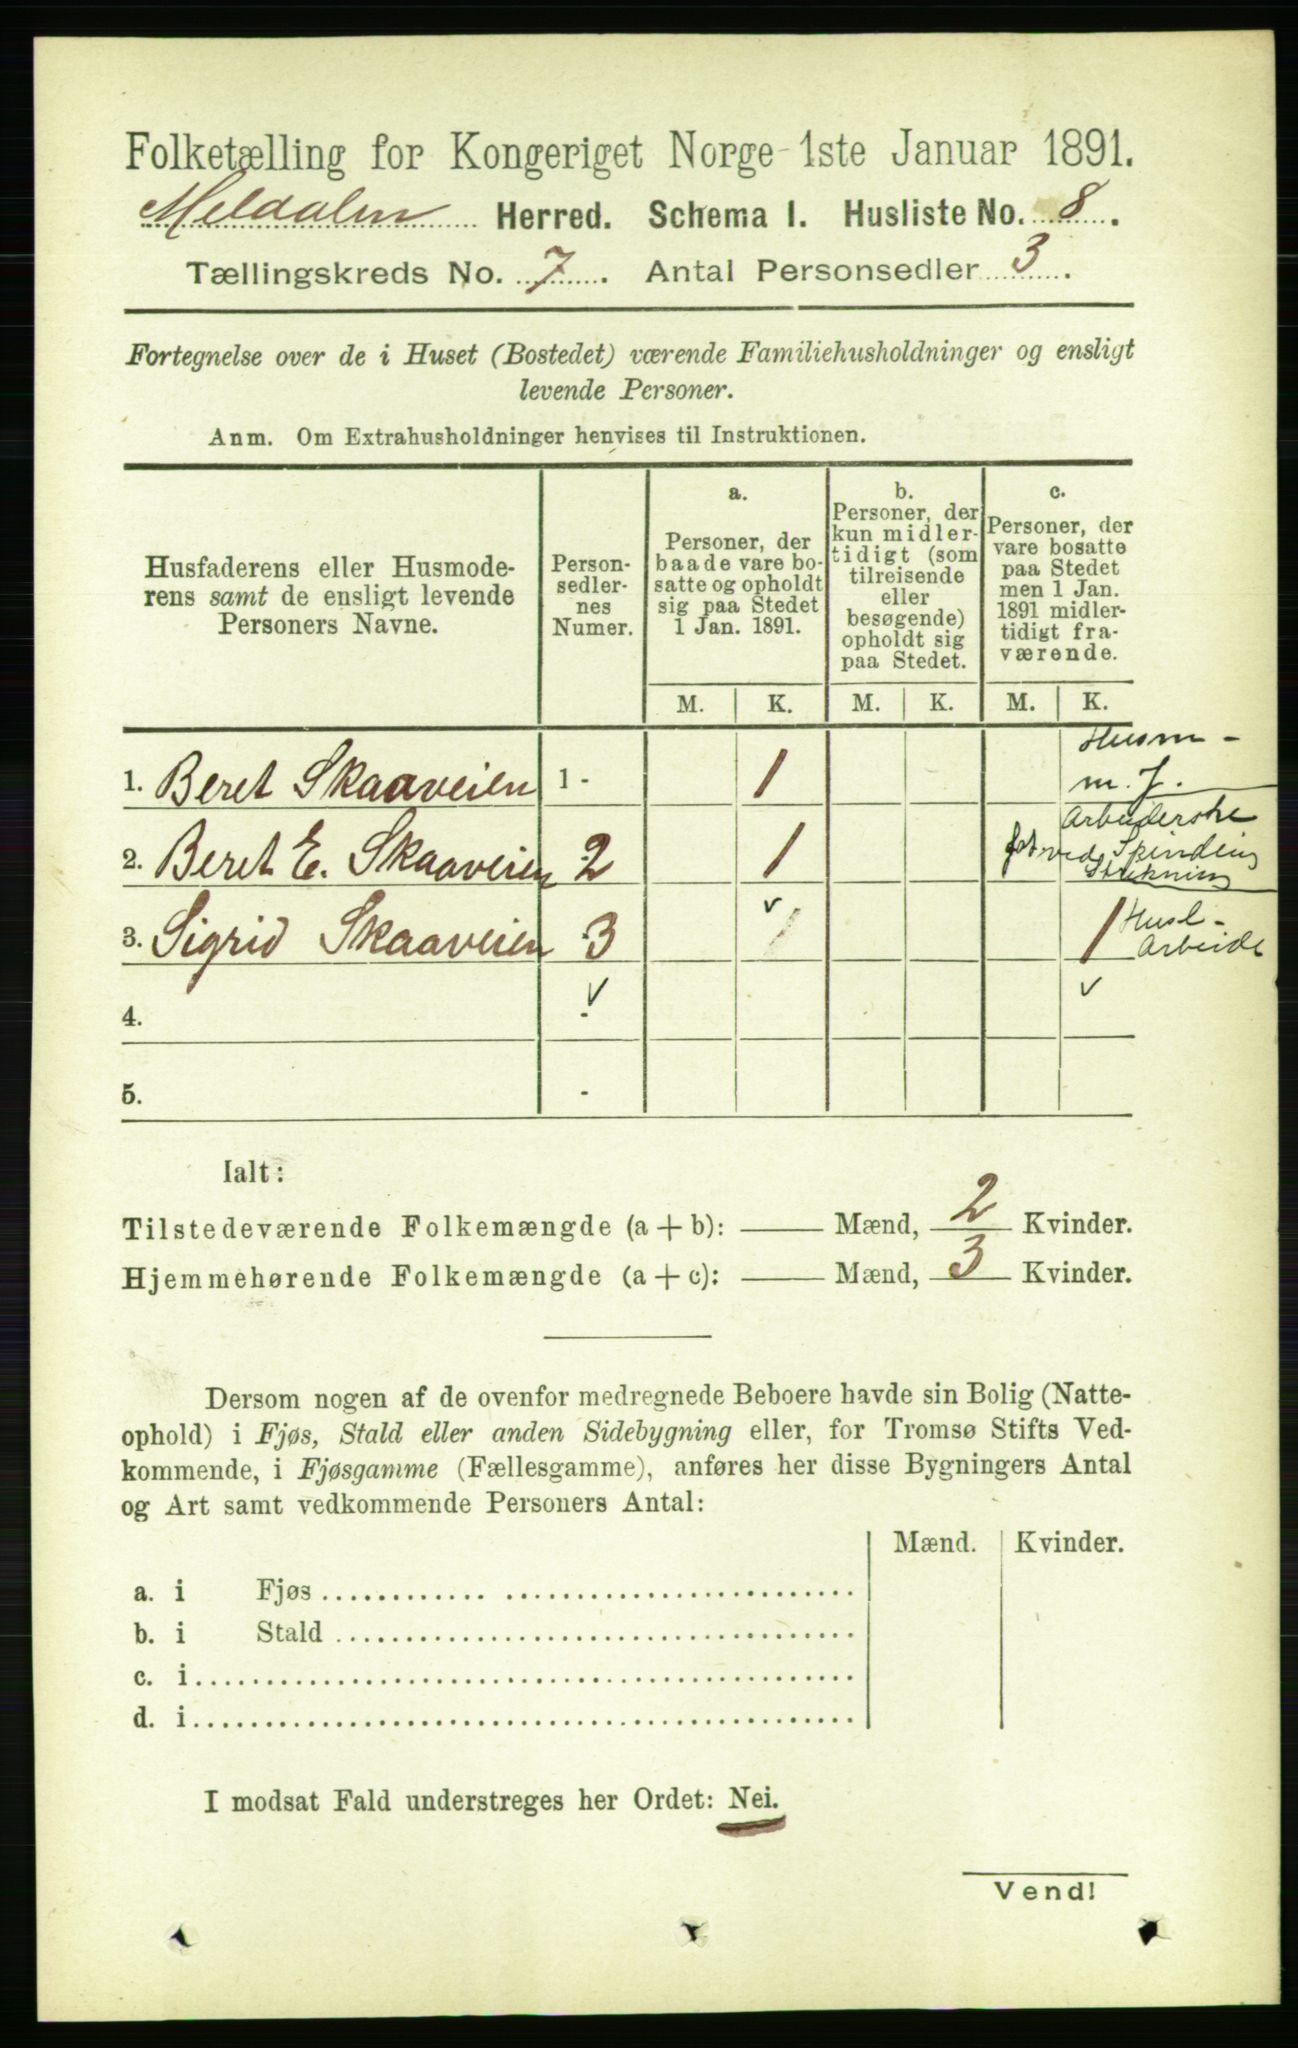 Folketælling for Kongeriget Norge 1ste Januar 1891.
Meldalen Herred. Schema I. Husliste No. 8.
Tællingskreds No. 7. Antal Personsedler 3.
Fortegnelse over de i Huset (Bostedet) værende Familiehusholdninger og ensligt
levende Personer.
Anm. Om Extrahusholdninger henvises til Instruktionen.
Husfaderens eller Husmode-
rens samt de ensligt levende
Personers Navne.
Person-
sedler-
nes
Numer.
a.
Personer, der
baade vare bo-
satte og opholdt
sig paa Stedet
1 Jan. 1891.
b.
Personer, der
kun midler-
tidigt (som
tilreisende
eller
besøgende)
opholdt sig
paa Stedet.
c.
Personer, der
vare bosatte
paa Stedet
men 1 Jan.
1891 midler-
tidigt fra-
værende.
M. K. M. K. M. K.
1. Beret Skaaveien 1 - 1 Husm -
m. J.
2. Beret E. Skaaveien 2 1 Arbeiderske
ved Spinding
Strikning
3. Sigrid Skaaveien 3 1 1 Husl -
Arbeide
4. -
5. -
Ialt:
Tilstedeværende Folkemængde (a + b): — Mænd, 2 Kvinder.
Hjemmehørende Folkemængde (a + c): — Mænd, 3 Kvinder.
Dersom nogen af de ovenfor medregnede Beboere havde sin Bolig (Natte-
ophold) i Fjøs, Stald eller anden Sidebygning eller, for Tromsø Stifts Ved-
kommende, i Fjøsgamme (Fællesgamme), anføres her disse Bygningers Antal
og Art samt vedkommende Personers Antal:
Mænd. Kvinder.
a. i Fjøs
b. i Stald
c. i
d. i
I modsat Fald understreges her Ordet: Nei.
Vend!